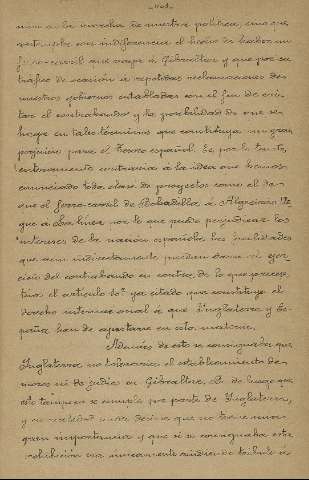 á la marcha de nuestra política, sino que
con indiferencia el hecho de haber un
ferro-carril que ocupe á Gibraltar y que por su
tráfico dé ocasión á repetidas reclamaciones de
nuestro gobierno entabladas con el fin de evi-
tar el contrabando y la posibilidad de que se
haga en tales términos que constituya un gran
perjuicio para el Tesoro español. Es por lo tanto,
enteramente contraria á la idea que hemos
enunciado toda clase de proyectos como el de
que el ferro-carril de Bobadilla á Algeciras
que á La Línea por lo que puede perjudicar los
intereses de la nación española las facilidades
que aun indirectamente pueden darse al ejer-
cicio del contrabando en contra de lo que precep-
túa el artículo 10º ya citado que constituye el
derecho internacional á que Inglaterra y Es-
paña han de sujetarse en esta materia.
Además de esto se consignaba que
Inglaterra no toleraría el establecimiento de
moros ni de judíos en Gibraltar,
esto tampoco se cumple por parte de Inglaterra,
y en realidad puede decirse que no tiene nin-
gran importancia y que si se consignaba esta
era únicamente rindiendo tributo á